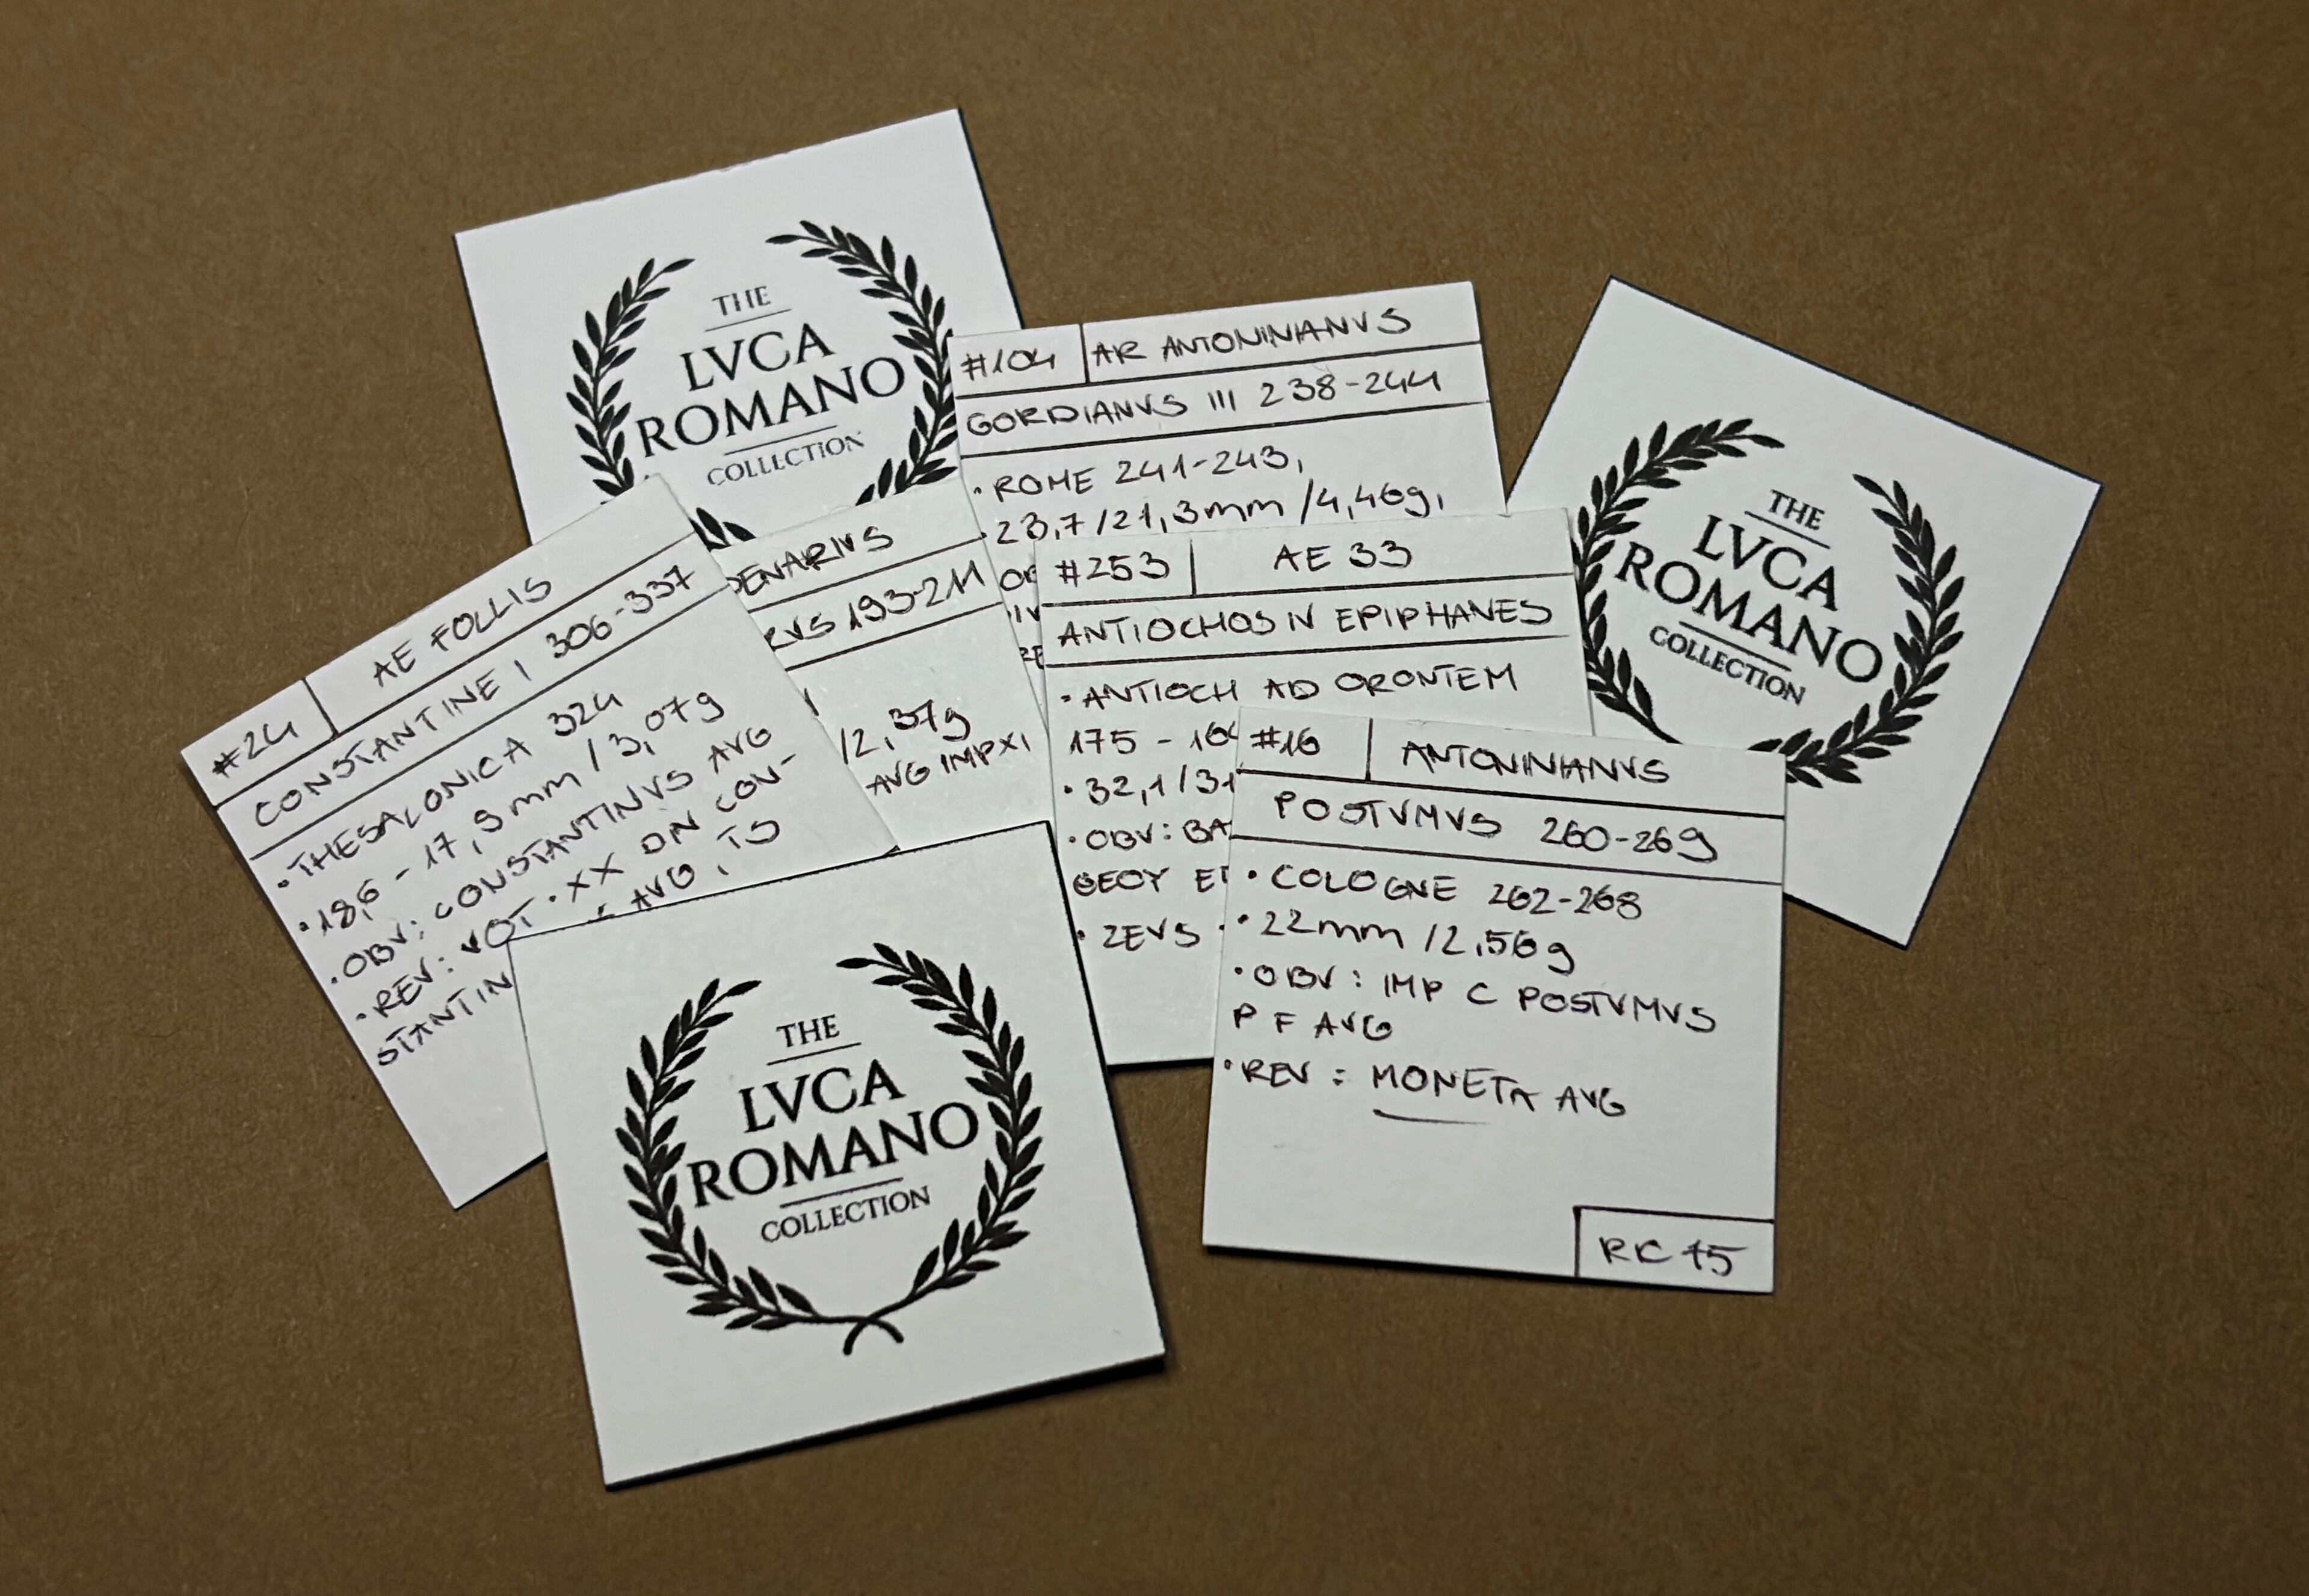 THE
LVCA
ROMANO
COLLECTION
#104 AR ANTONINIANVS
GORDIANVS III 238-244
· ROME 241-243,
· 23,7/21,3mm /4,46g,
THE
LVCA
ROMANO
COLLECTION
#24 AE FOLLIS
CONSTANTINE I 306-337
· THESALONICA 324
· 18,6 - 17,9mm / 3,07g
· OBV: CONSTANTINVS AVG
· REV: VOT · XX DN CON-
STANTIN AVG, TS
DENARIVS
RVS 193-211
/2,37g
AVG IMP XI
#253 AE 33
ANTIOCHOS IV EPIPHANES
· ANTIOCH AD ORONTEM
175 - 16
· 32,1/31
· OBV: BA
ΘEOY EΠ
· ZEVS
#16 ANTONINIANVS
POSTVMVS 260-269
· COLOGNE 262-268
· 22mm /2,56g
· OBV: IMP C POSTVMVS
P F AVG
· REV: MONETA AVG
RIC 75
THE
LVCA
ROMANO
COLLECTION